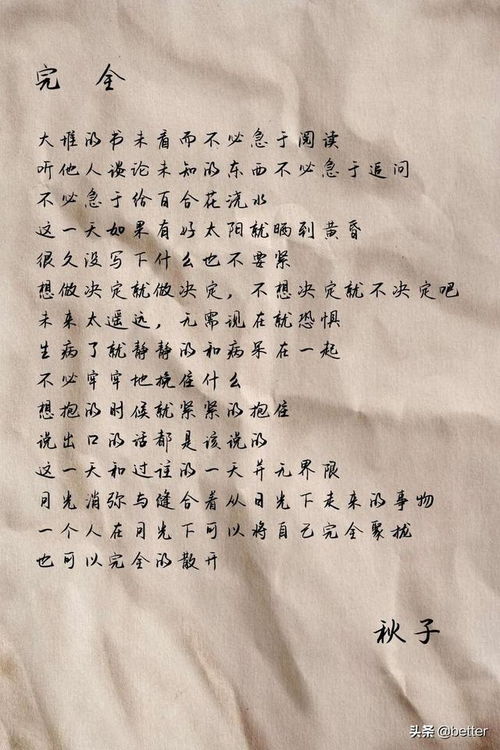 完 全
大堆的书未看而不必急于阅读
听他人谈论未知的东西不必急于追问
不必急于给百合花浇水
这一天如果有好太阳就晒到黄昏
很久没写下什么也不要紧
想做决定就做决定，不想决定就不决定吧
未来太遥远，无需现在就恐惧
生病了就静静的和病呆在一起
不必牢牢地挽住什么
想抱的时候就紧紧的抱住
说出口的话都是该说的
这一天和过往的一天并无界限
月光消弥与缝合着从日光下走来的事物
一个人在月光下可以将自己完全聚拢
也可以完全的散开
秋子
头条 @better